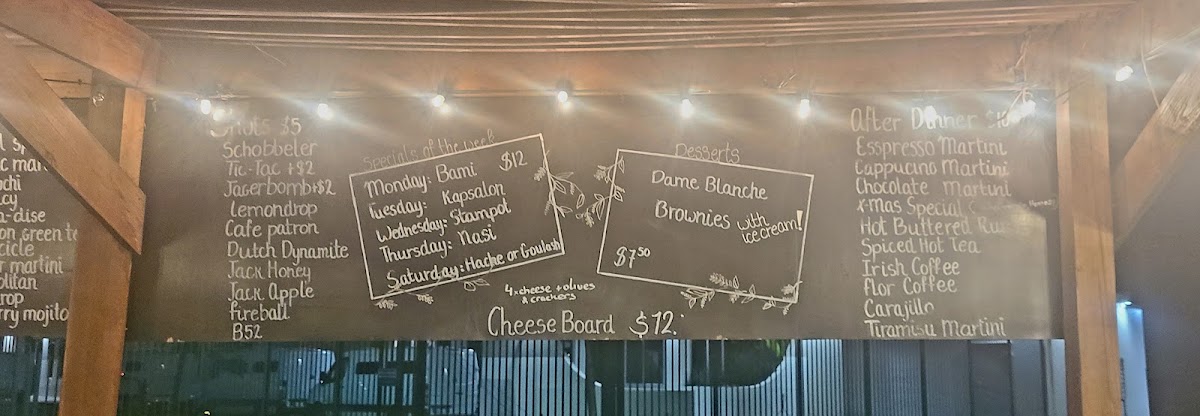 martini
mojito
$5
Schobbeler
Tic-Tac +$2
Jagerbomb+$2
Lemondrop
Cafe patron
Dutch Dynamite
Jack Honey
Jack Apple
fireball
B52
Specials of the week
Monday: Bami $12
Tuesday: Kapsalon
Wednesday: Stampot
Thursday: Nasi
Saturday: Hache or Goulash
Desserts
Dame Blanche
Brownies with
ice cream!
$7.50
4x cheese + olives
& crackers
Cheese Board $12.
After Dinner
Esspresso Martini
Cappucino Martini
Chocolate Martini
X-Mas Special
Hot Buttered
Spiced Hot Tea
Irish Coffee
flor Coffee
Carajillo
Tiramisu Martini